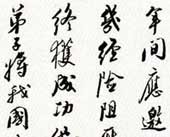 年间應邀
幾经险阻
终獲成功
弟子将我國